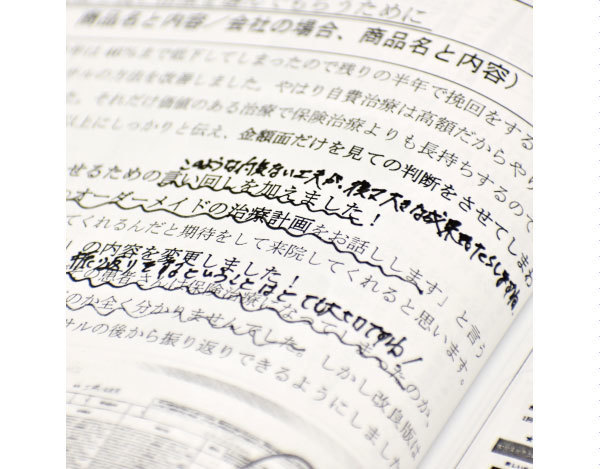 てもらうために
商品名と内容／会社の場合、商品名と内容）
年は 46％まで低下してしまったので残りの半年で挽回をする
の方法を改善しました。やはり自費治療は高額だからやり
た。それだけ価値のある治療で保険治療よりも長持ちするので
以上にしっかりと伝え、金額面だけを見ての判断をさせてしまわ
このような何気ない工夫が、後々大きな成果をもたらしますね
せるための言い回しを加えました！
オーダーメイドの治療計画をお話しします」と言う
てくれるんだと期待をして来院してくれると思います。
の内容を変更しました！
振り返りをするということはとても大切ですね！
の患者さんは保険治療になってしまったのか、
のか全く分かりませんでした。しかし改良版は
サルの後から振り返りできるようにしました